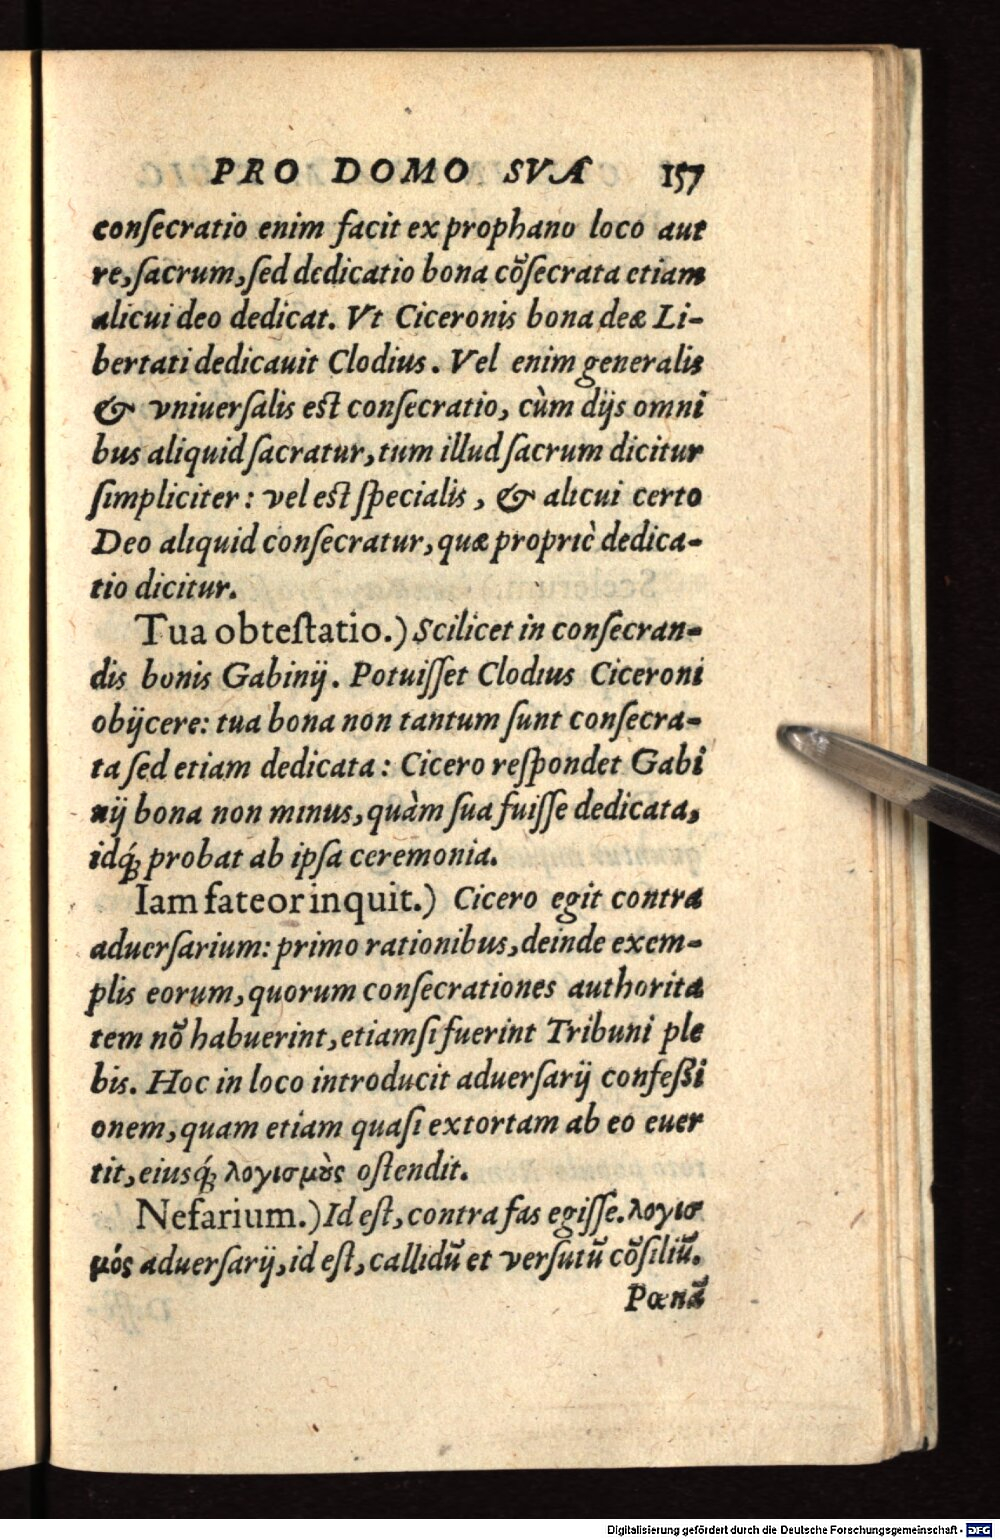 PRO DOMO SVA 157
conſecratio enim facit ex prophano loco aut
re, ſacrum, ſed dedicatio bona cõſecrata etiam
alicui deo dedicat. Vt Ciceronis bona deæ Li-
bertati dedicauit Clodius. Vel enim generalis
& vniuerſalis eſt conſecratio, cùm dijs omni
bus aliquid ſacratur, tum illud ſacrum dicitur
ſimpliciter: vel eſt ſpecialis, & alicui certo
Deo aliquid conſecratur, quæ propriè dedica-
tio dicitur.
Tua obteſtatio.) Scilicet in conſecran-
dis bonis Gabinij. Potuiſſet Clodius Ciceroni
obijcere: tua bona non tantum ſunt conſecra-
ta ſed etiam dedicata: Cicero reſpondet Gabi
nij bona non minus, quàm ſua fuiſſe dedicata,
idq́; probat ab ipſa ceremonia.
Iam fateor inquit.) Cicero egit contra
aduerſarium: primo rationibus, deinde exem-
plis eorum, quorum conſecrationes authorita
tem nõ habuerint, etiamſi fuerint Tribuni ple
bis. Hoc in loco introducit aduerſarij confeßi
onem, quam etiam quaſi extortam ab eo euer
tit, eiusq́; λογισμȣ̀ς oſtendit.
Nefarium.) Id eſt, contra fas egiſſe. λογισ
μός aduerſarij, id eſt, callidũ et verſutũ cõſiliũ.
Pœnã
Digitalisierung gefördert durch die Deutsche Forschungsgemeinschaft - DFG